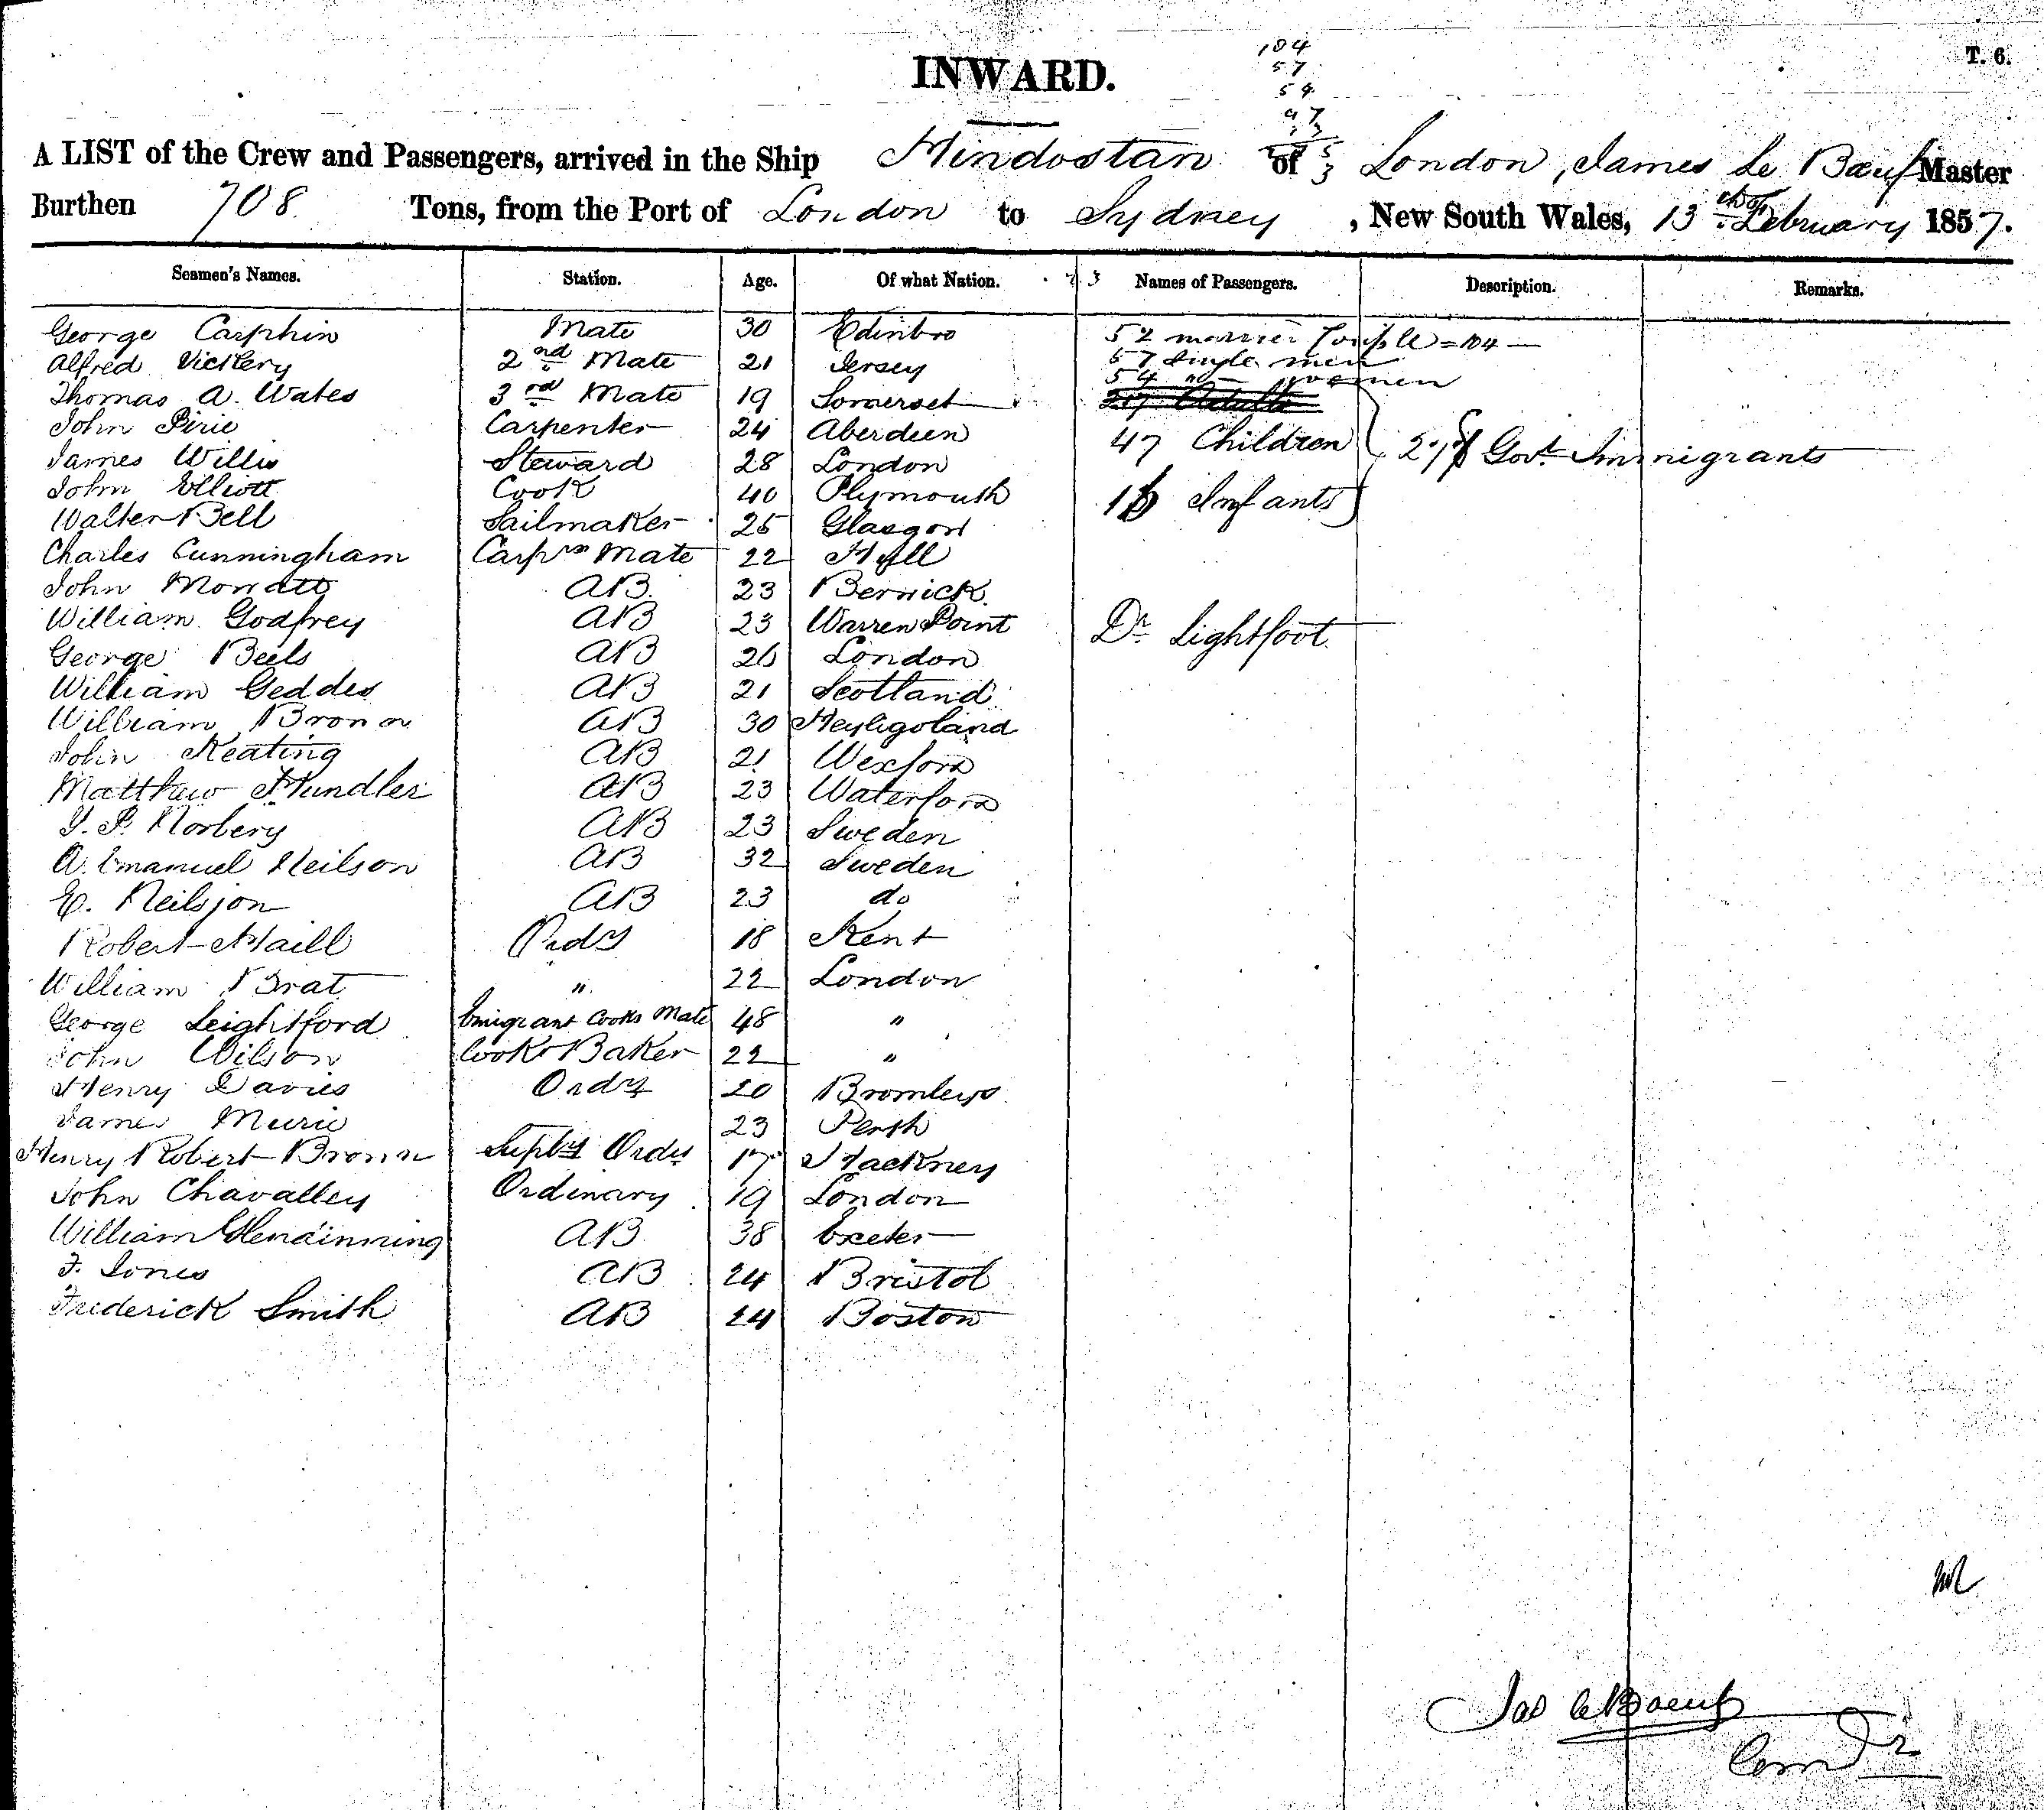 104
57
54
47
INWARD.
T. 6.
A LIST of the Crew and Passengers, arrived in the Ship Hindostan of London, James Le Bœuf Master
Burthen 708 Tons, from the Port of London to Sydney, New South Wales, 13th of February 1857.
Seamen's Names. Station. Age. Of what Nation. Names of Passengers. Description. Remarks.
George Carphin Mate 30 Edinbro 52 married Couple = 104
Alfred Vickery 2nd Mate 21 Jersey 57 single men
Thomas A. Wates 3rd Mate 19 Somerset 54 do women
John Pirie Carpenter 24 Aberdeen
James Willis Steward 28 London 47 Children Govt Immigrants
John Elliott Cook 40 Plymouth Infants
Walter Bell Sailmaker 25 Glasgow
Charles Cunningham Carprs Mate 22 Hull
John Mowatt AB. 23 Berwick
William Godfrey AB 23 Warren Point Dr Lightfoot
George Beels AB 26 London
William Geddes AB 21 Scotland
William Brown AB 30 Heyligoland
John Keating AB 21 Wexford
Matthew Hundler AB 23 Waterford
J. P. Norbery AB 23 Sweden
A. Emanuel Neilson AB 32 Sweden
E. Neilsson AB 23 do
Robert Haill Ordy 18 Kent
William Brat " 22 London
George Leightford Emigrant Cooks Mate 48 "
John Wilson Cook & Baker 22 "
Henry Davies Ordy 20 Bromleys
James Murie 23 Perth
Henry Robert Brown Suply Ordy 17 Hackney
John Chavalley Ordinary 19 London
William Glendinning AB 38 Exeter
F. Jones AB 24 Bristol
Frederick Smith AB 24 Boston
Jas Le Boeuf
Comdr